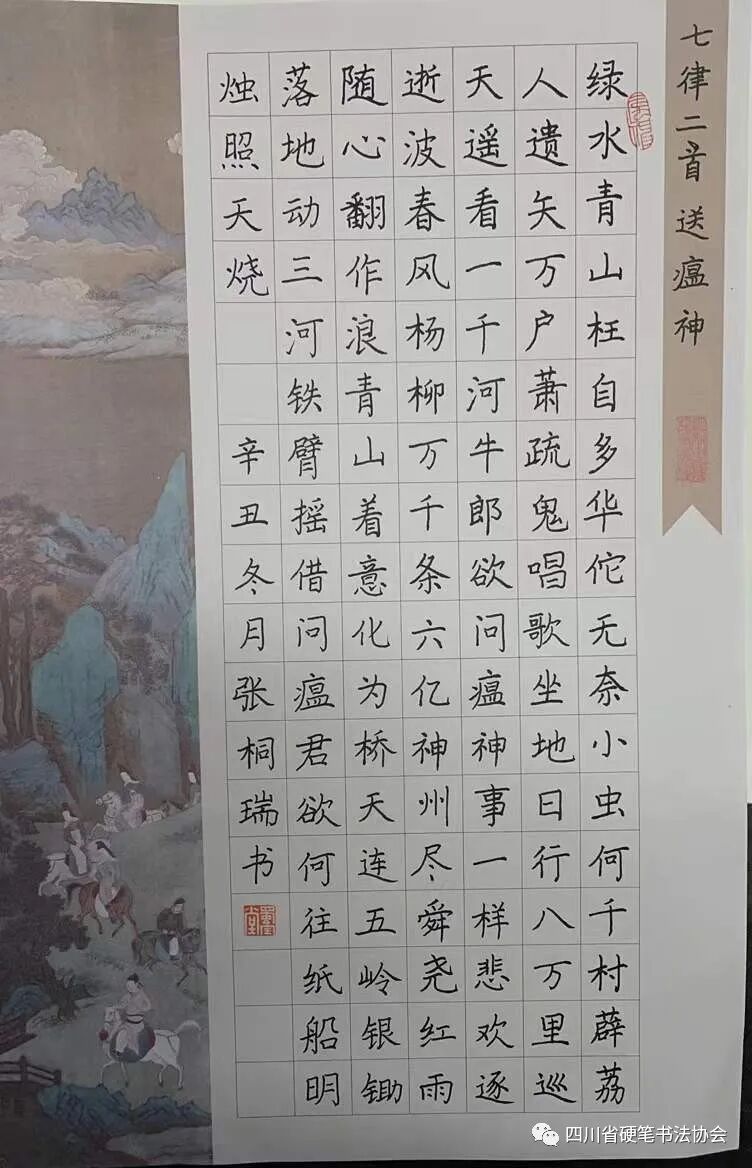 七律二首 送瘟神
绿水青山枉自多华佗无奈小虫何千村薜荔
人遗矢万户萧疏鬼唱歌坐地日行八万里巡
天遥看一千河牛郎欲问瘟神事一样悲欢逐
逝波春风杨柳万千条六亿神州尽舜尧红雨
随心翻作浪青山着意化为桥天连五岭银锄
落地动三河铁臂摇借问瘟君欲何往纸船明
烛照天烧 辛丑冬月张桐瑞书
四川省硬笔书法协会